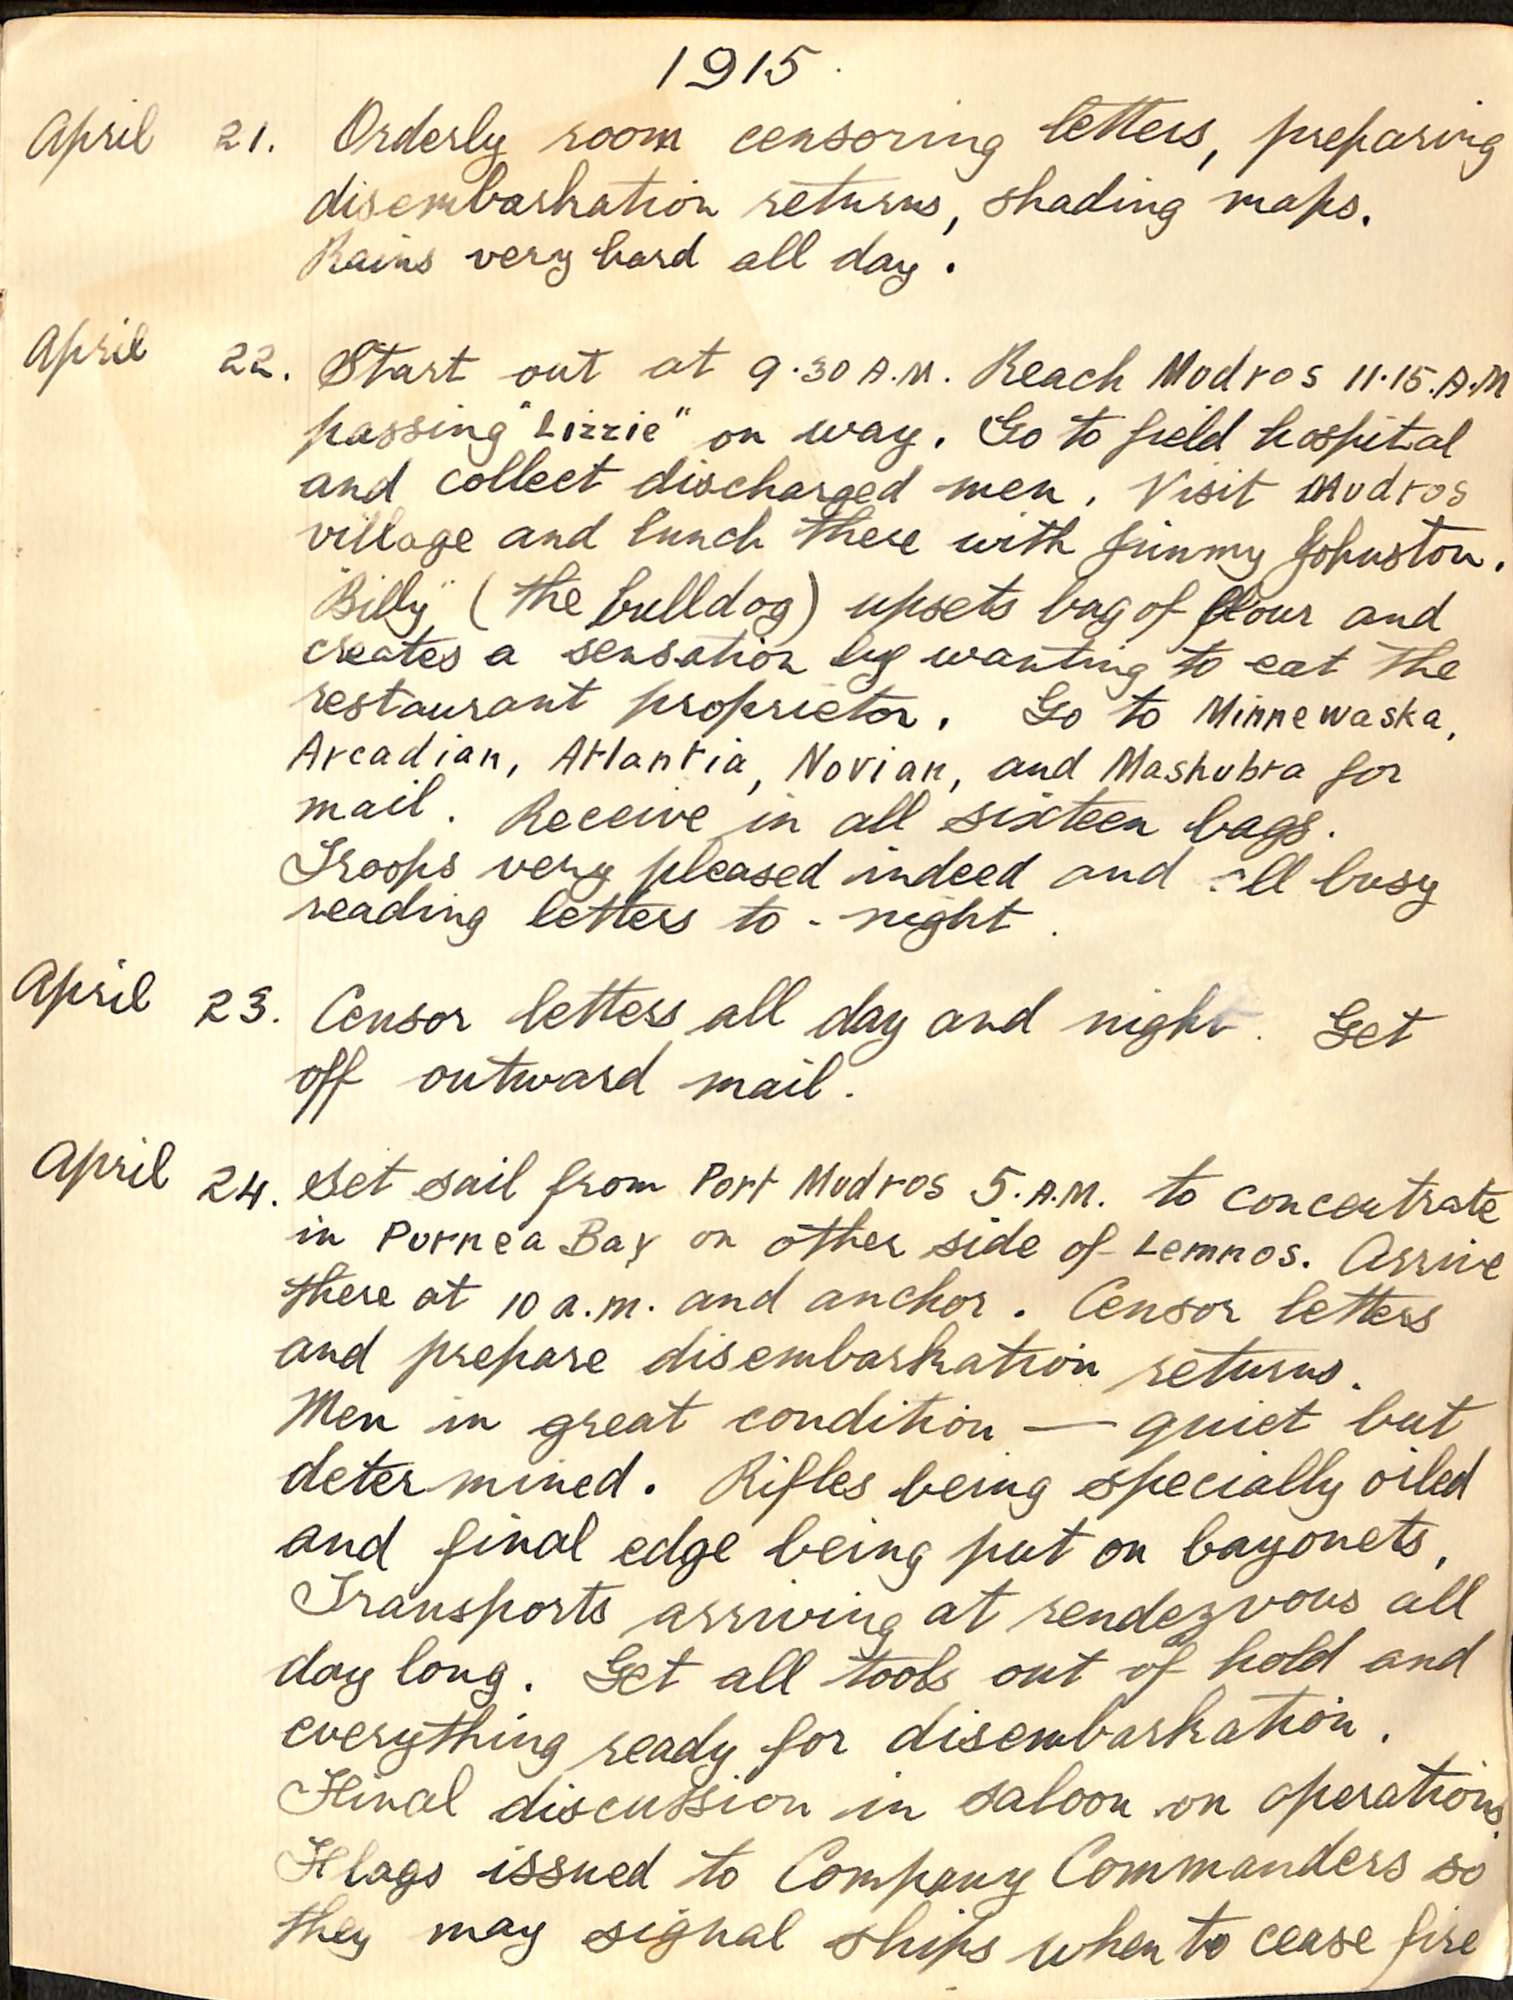 1915.
April 21. Orderly room censoring letters, preparing
disembarkation returns, shading maps.
Rains very hard all day.
April 22. Start out at 9.30 A.M. Reach Mudros 11.15. A.M
passing "Lizzie" on way. Go to field hospital
and collect discharged men. Visit Mudros
village and lunch there with Jimmy Johnston.
"Billy" (the bulldog) upsets bag of flour and
creates a sensation by wanting to eat the
restaurant proprietor. Go to Minnewaska,
Arcadian, Atlantia, Novian, and Mashubra for
mail. Receive in all sixteen bags.
Troops very pleased indeed and all busy
reading letters to-night.
April 23. Censor letters all day and night. Get
off outward mail.
April 24. Set sail from Port Mudros 5. A.M. to concentrate
in Purnea Bay on other side of Lemnos. Arrive
there at 10 a.m. and anchor. Censor letters
and prepare disembarkation returns.
Men in great condition — quiet but
determined. Rifles being specially oiled
and final edge being put on bayonets.
Transports arriving at rendezvous all
day long. Get all tools out of hold and
everything ready for disembarkation.
Final discussion in saloon on operations.
Flags issued to Company Commanders so
they may signal ships when to cease fire